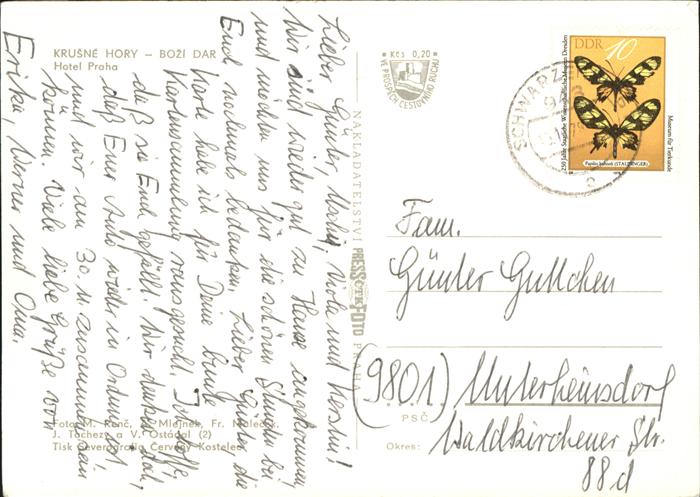 KRUŠNÉ HORY – BOŽÍ DAR
Hotel Praha
Lieber Günter, Viola und
Wir sind wieder gut zu Hause angekommen
und möchten uns für die schönen Stunden bei
Euch nochmals bedanken. Lieber Günter die
Karte habe ich für Deine bunte
Kartensammlung rausgesucht. Ich hoffe,
daß sie Euch gefällt. Wir denken doch,
daß Euer Auto wieder in Ordnung ist,
und wir am 30.11. zusammen sein
können. Viele liebe Grüße von
Erika, Werner und Oma.
Foto: M. Mlejnek, Fr. Maleček,
J. Tachezy a V. Ostádal (2)
Tisk Severografia Červený Kostelec
Kčs 0,20
VE PROSPĚCH CESTOVNÍHO RUCHU
NAKLADATELSTVÍ PRESSFOTO PRAHA
DDR 10
250 Jahre Staatliche Wissenschaftliche Museen Dresden
Museum für Tierkunde
Papilio hahneli (STAUDINGER)
SCHWARZE
Fam.
Günter Gullchen
(9801) Unterheinsdorf
PSČ
Waldkirchener Str.
Okres:
88d